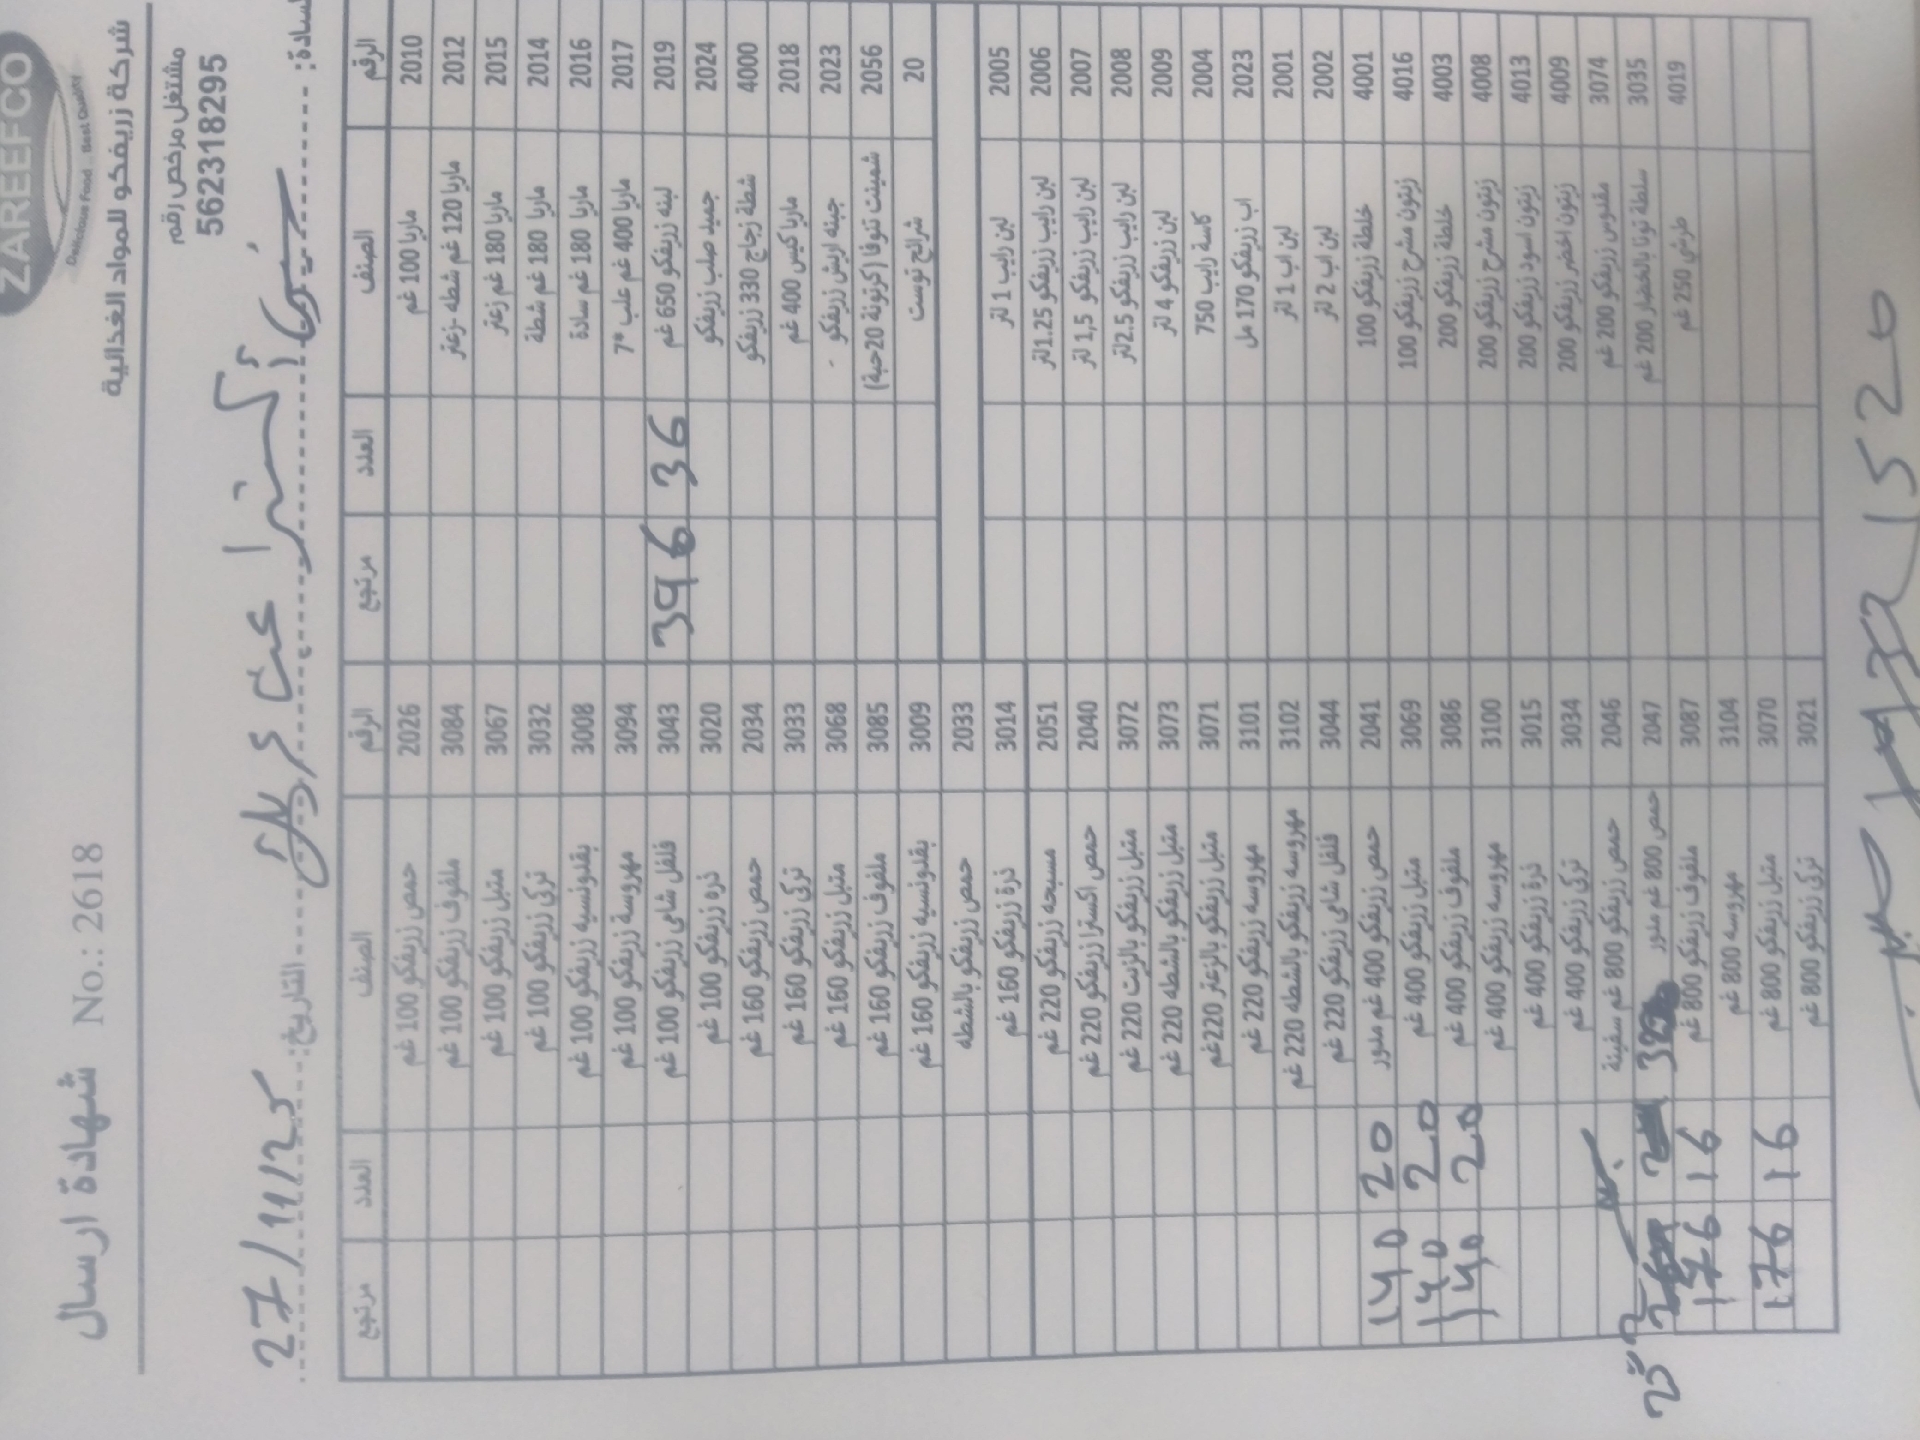 ZAREEFCO
Delicious Food .. Best Quality
شركة زريفكو للمواد الغذائية
شهادة ارسال No.: 2618
مشتغل مرخص رقم
562318295
السادة:
التاريخ: 27/11/25
الرقم الصنف العدد مرتجع الرقم الصنف العدد مرتجع
2010 ماريا 100 غم 2026 حمص زريفكو 100 غم
2012 ماريا 120 غم شطه -زعتر 3084 ملفوف زريفكو 100 غم
2015 ماريا 180 غم زعتر 3067 متبل زريفكو 100 غم
2014 ماريا 180 غم شطة 3032 تركي زريفكو 100 غم
2016 ماريا 180 غم سادة 3008 بقدونسيه زريفكو 100 غم
2017 ماريا 400 غم علب *7 3094 مهروسة زريفكو 100 غم
2019 لبنه زريفكو 650 غم 36 396 3043 فلفل شامي زريفكو 100 غم
2024 جميد صلب زريفكو 3020 ذره زريفكو 100 غم
4000 شطة زجاج 330 زريفكو 2034 حمص زريفكو 160 غم
2018 ماريا كيس 400 غم 3033 تركي زريفكو 160 غم
2023 جبنه اريش زريفكو 3068 متبل زريفكو 160 غم
2056 شمينت تنوفا (كرتونة 20حبة) 3085 ملفوف زريفكو 160 غم
20 شرائح توست 3009 بقدونسيه زريفكو 160 غم
2033 حمص زريفكو بالشطه
2005 لبن رايب 1 لتر 3014 ذرة زريفكو 160 غم
2006 لبن رايب زريفكو 1.25لتر 2051 مسبحه زريفكو 220 غم
2007 لبن رايب زريفكو 1,5 لتر 2040 حمص اكسترا زريفكو 220 غم
2008 لبن رايب زريفكو 2.5لتر 3072 متبل زريفكو بالزيت 220 غم
2009 لبن زريفكو 4 لتر 3073 متبل زريفكو بالشطه 220 غم
2004 كاسة رايب 750 3071 متبل زريفكو بالزعتر 220غم
2023 اب زريفكو 170 مل 3101 مهروسه زريفكو 220 غم
2001 لبن اب 1 لتر 3102 مهروسه زريفكو بالشطه 220 غم
2002 لبن اب 2 لتر 3044 فلفل شامي زريفكو 220 غم
4001 خلطة زريفكو 100 2041 حمص زريفكو 400 غم مدور 20 140
4016 زيتون مشرح زريفكو 100 3069 متبل زريفكو 400 غم 20 140
4003 خلطة زريفكو 200 3086 ملفوف زريفكو 400 غم 20 140
4008 زيتون مشرح زريفكو 200 3100 مهروسه زريفكو 400 غم
4013 زيتون اسود زريفكو 200 3015 ذرة زريفكو 400 غم
4009 زيتون اخضر زريفكو 200 3034 تركي زريفكو 400 غم
3074 مغدوس زريفكو 200 غم 2046 حمص زريفكو 800 غم سفينة
3035 سلطة تونا بالخضار 200 غم 2047 حمص 800 غم مدور
4019 طرشي 250 غم 3087 ملفوف زريفكو 800 غم 16 176
3104 مهروسه 800 غم
3070 متبل زريفكو 800 غم 16 176
3021 تركي زريفكو 800 غم
1520